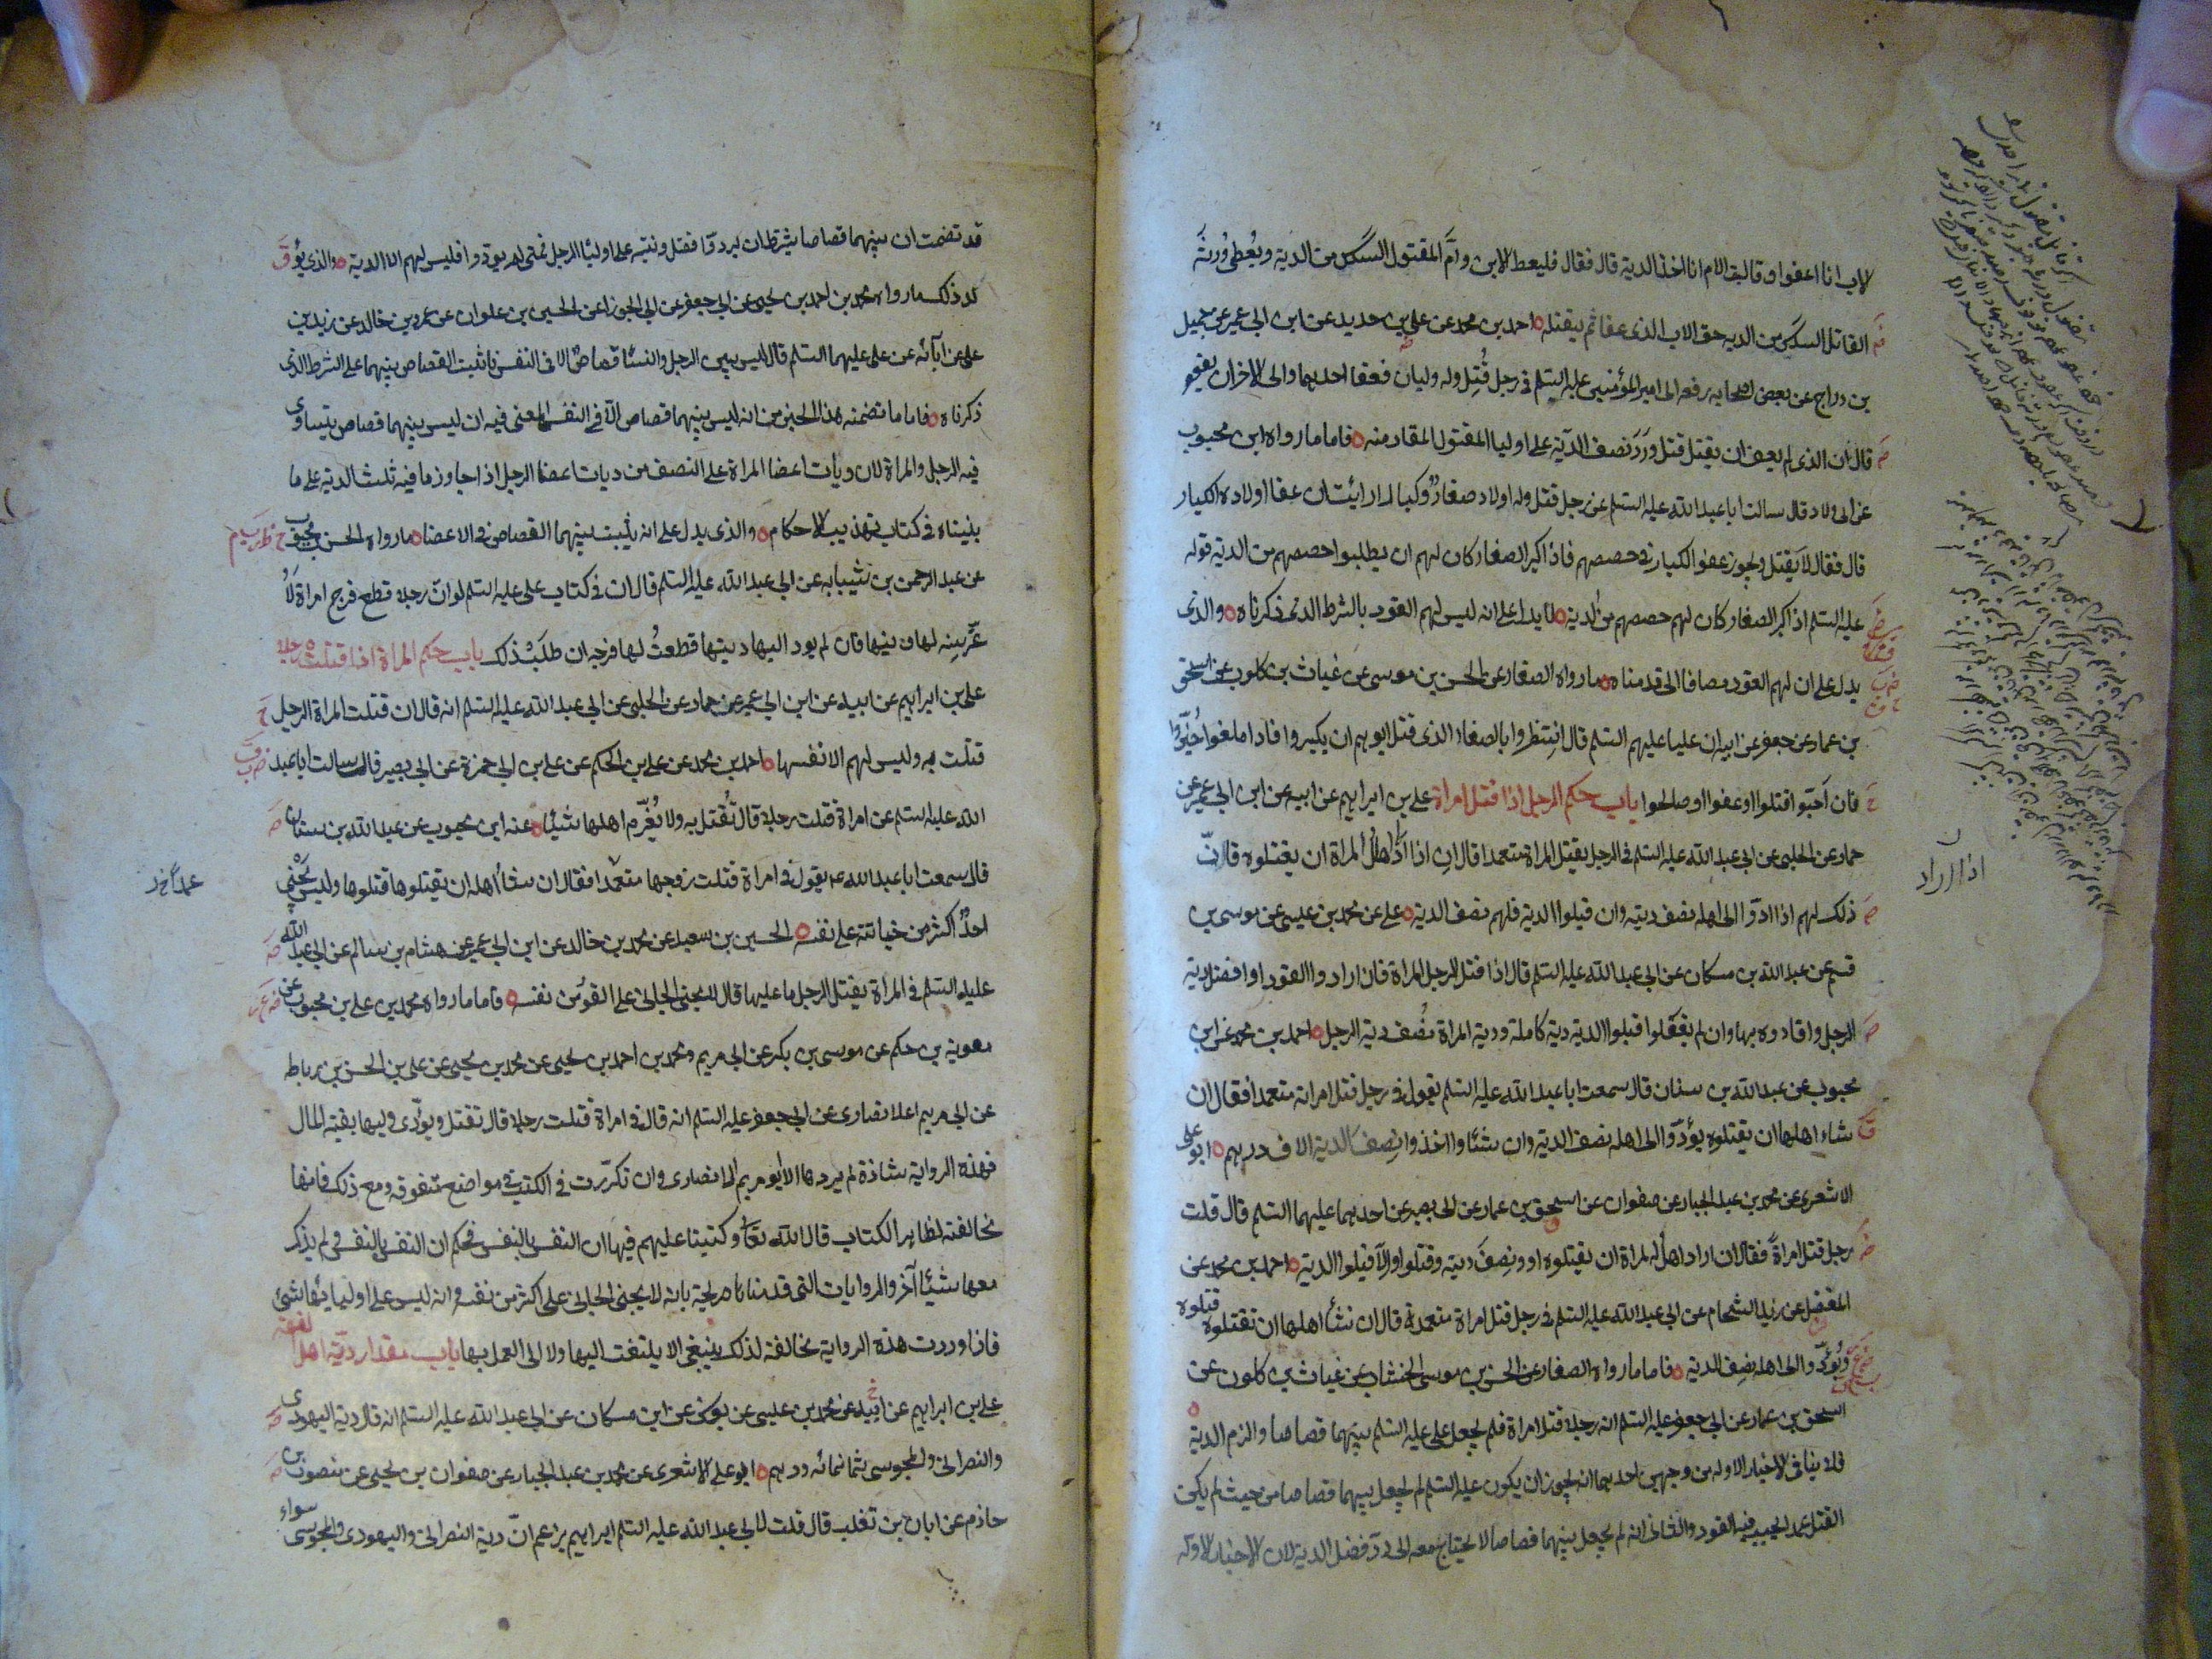 لاب انا اعفوا وقالت الام انا اخذ الدية قال فقال فليعط الابن وامّ المقتول السدس من الدية ويُعطى ورثة
القاتل السدس من الديه حق الاب الذى عفا ثم ليقتله احمد بن محمد عن على بن حديد عن ابن ابى عمير عن جميل
بن دراج عن بعض اصحابه رفعه الى امير المؤمنين عليه السّلم فى رجل قُتِل وله وليان فعفا احدهما وابى الاخر ان يعفو
قال ان الذى لم يعف ان يقتل قتل وَرَدَ نصف الديّة على اوليا المقتول المقاد منه فاما ما رواه ابن محبوب
عن ابى ولاد قال سالت ابا عبد الله عليه السّلم عن رجل قتل وله اولاد صغار وكبار ارايت ان عفا اولاده الكبار
قال فقال لا يقتل ويجوز عفو الكبار فى حصصهم فاذا كبر الصغار كان لهم ان يطلبوا حصصهم من الدية قوله
عليه السّلم اذا كبر الصغار كان لهم حصصهم من الدية لا يدل على انه ليس لهم القود بالشرط الذى ذكرناه والذى
يدل على ان لهم القود مضافا الى ما قدمناه ما رواه الصفار عن الحسن بن موسى عن غياث بن كلوب عن اسحق
بن عمار عن جعفر عن ابيه ان عليا عليهم السّلم قال انتظروا بالصغار الذى قتل ابوهم ان يكبروا فاذا بلغوا خُيّروا
فان احبّوا قتلوا او عفوا او صالحوا باب حكم الرجل اذا قتل امراة على بن ابراهيم عن ابيه عن ابن ابى عمير عن
حماد عن الحلبى عن ابى عبد الله عليه السّلم فى الرجل يقتل المراة متعمدا قال ان اذا اراد اهل المراة ان يقتلوه قال
ذلك لهم اذا ادّوا الى اهله نصف ديته وان قبلوا الدية فلهم نصف الدية على عن محمد بن عيسى عن موسى بن
عن عبد الله بن مسكان عن ابى عبد الله عليه السّلم قال اذا قتل الرجل المراة فان ارادوا القود ادوا فضل دية
الرجل واقادوه بها وان لم يفعلوا قبلوا الدية دية كاملة ودية المراة نصف دية الرجل احمد بن محمد عن ابن
محبوب عن عبد الله بن سنان قال سمعت ابا عبد الله عليه السّلم يقول فى رجل قتل امراته متعمدا فقال ان
شاء اهلها ان يقتلوه يؤدّوا الى اهله نصف الدية وان شاءوا اخذوا نصف الدية الاف درهم ابو على
الاشعرى عن محمد بن عبد الجبار عن صفوان عن اسحق بن عمار عن ابى بصير عن احدهما عليهما السّلم قال قلت
رجل قتل امراةً فقال ان اراد اهل المراة ان يقتلوه ادوا نصف ديته وقتلوا والّا قبلوا الدية احمد بن محمد عن
المفضل عن زيد الشحام عن ابى عبد الله عليه السّلم فى رجل قتل امراة متعمدة قال ان شاء اهلها ان تقتلوه قتلوه
ويُؤدّوا الى اهله نصف الدية فاما ما رواه الصفار عن الحسن بن موسى الخشاب عن غياث بن كلوب عن
اسحق بن عمار عن ابى جعفر عليه السّلم ان رجلا قتل امراة فلم يجعل على عليه السّلم بينهما قصاصا والزم الدية
فلا ينافى الاخبار الاوله من وجهين احدهما انه يجوز ان يكون عليه السّلم لم يجعل بينهما قصاصا من حيث لم يكن
القتل عمدا يجب فيه القود والثانى انه لم يجعل بينهما قصاصا لا يحتاج معه الى ردّ فضل الدية لان الاخبار الاوله
اذا اراد
قد تضمنت ان بينهما قصاصا بشرط ان يردّوا فضل ديته على اوليا الرجل فمتى لم يودّوا فليس لهم الا الدية والذى يؤ
كد ذلك ما رواه محمد بن احمد بن يحيى عن ابى جعفر عن ابى الجوزا عن الحسين بن علوان عن عمرو بن خالد عن زيد بن
على عن ابآئه عن على عليهما السّلم قال ليس بين الرجل والنسا قصاص الا فى النفس فاثبت القصاص بينهما على الشرط الذى
ذكرناه فاما ما تضمنه هذا الخبر من انه ليس بينهما قصاص الّا فى النفس المعنى فيه ان ليس بينهما قصاص يتساوى
فيه الرجل والمراة لان ديات اعضا المراة على النصف من ديات اعضا الرجل اذا جاوز ما فيه ثلث الدية على ما
بيناه فى كتاب تهذيب الاحكام والذى يدل على انه يثبت بينهما القصاص فى الاعضا ما رواه الحسن بن محبوب
عن عبد الرحمن بن شيبابه عن ابى عبد الله عليه السّلم قال ان فى كتاب على عليه السّلم لو ان رجلا قطع فرج امراة لا
غرّمنه لها ديتها فان لم يود اليها ديتها قطعتُ لها فرجه ان طلبت ذلك باب حكم المراة اذا قتلت رجلا
على بن ابراهيم عن ابيه عن ابن ابى عمير عن حماد عن الحلبى عن ابى عبد الله عليه السّلم انه قال ان قتلت المراة الرجل
قتلت به وليس لهم الا نفسها احمد بن محمد عن على بن الحكم عن على بن ابى حمزة عن ابى بصير قال سالت ابا عبد
الله عليه السّلم عن امراة قتلت رجلا قال تُقتل به ولا يُغرّم اهلها شيئا عنه ابن محبوب عن عبد الله بن سنان
قال سمعت ابا عبد الله ع يقول فى امراة قتلت زوجها متعمّدا فقال ان شاء اهله ان يقتلوها قتلوها وليس يجنى
احدٌ اكثر من جنايته على نفسه الحسين بن سعيد عن محمد بن خالد عن ابن ابى عمير عن هشام بن سالم عن ابى عبد الله
عليه السّلم فى المراة تقتل الرجل ما عليها قال لا يجنى الجانى على اكثر من نفسه فاما ما رواه محمد بن على بن محبوب عن
معوية بن حكم عن موسى بن بكر عن ابى مريم ومحمد بن احمد بن يحيى عن محمد بن يحيى عن على بن الحسن بن رباط
عن ابى مريم الانصارى عن ابى جعفر عليه السّلم انه قال فى امراة قتلت رجلا قال تقتل ويؤدّى وليها بقية المال
فهذه الرواية شاذة لم يروها الا ابو مريم الانصارى وان تكرّرت فى الكتب فى مواضع متفرقه ومع ذلك فانها
مخالفة لظاهر الكتاب قال الله تعا وكتبنا عليهم فيها ان النفس بالنفس فحكم ان النفس بالنفس ولم يذكر
معها شيئا آخر والروايات التى قدمناها صريحة بانه لا يجنى الجانى على اكثر من نفسه وانه ليس على اوليائها شئ
فاذا وردت هذه الرواية مخالفة لذلك ينبغى الا يلتفت اليها ولا الى العمل بها باب مقدار ديّة اهل الذمة
على بن ابراهيم عن ابيه عن محمد بن عيسى عن يونس عن ابن مسكان عن ابى عبد الله عليه السّلم انه قال دية اليهودى
والنصرانى والمجوسى ثمانمائه درهم ابو على الاشعرى عن محمد بن عبد الجبار عن صفوان بن يحيى عن منصور بن
حازم عن ابان بن تغلب قال قلت لابى عبد الله عليه السّلم ابراهيم يزعم انّ دية النصرانى واليهودى والمجوسى سواء